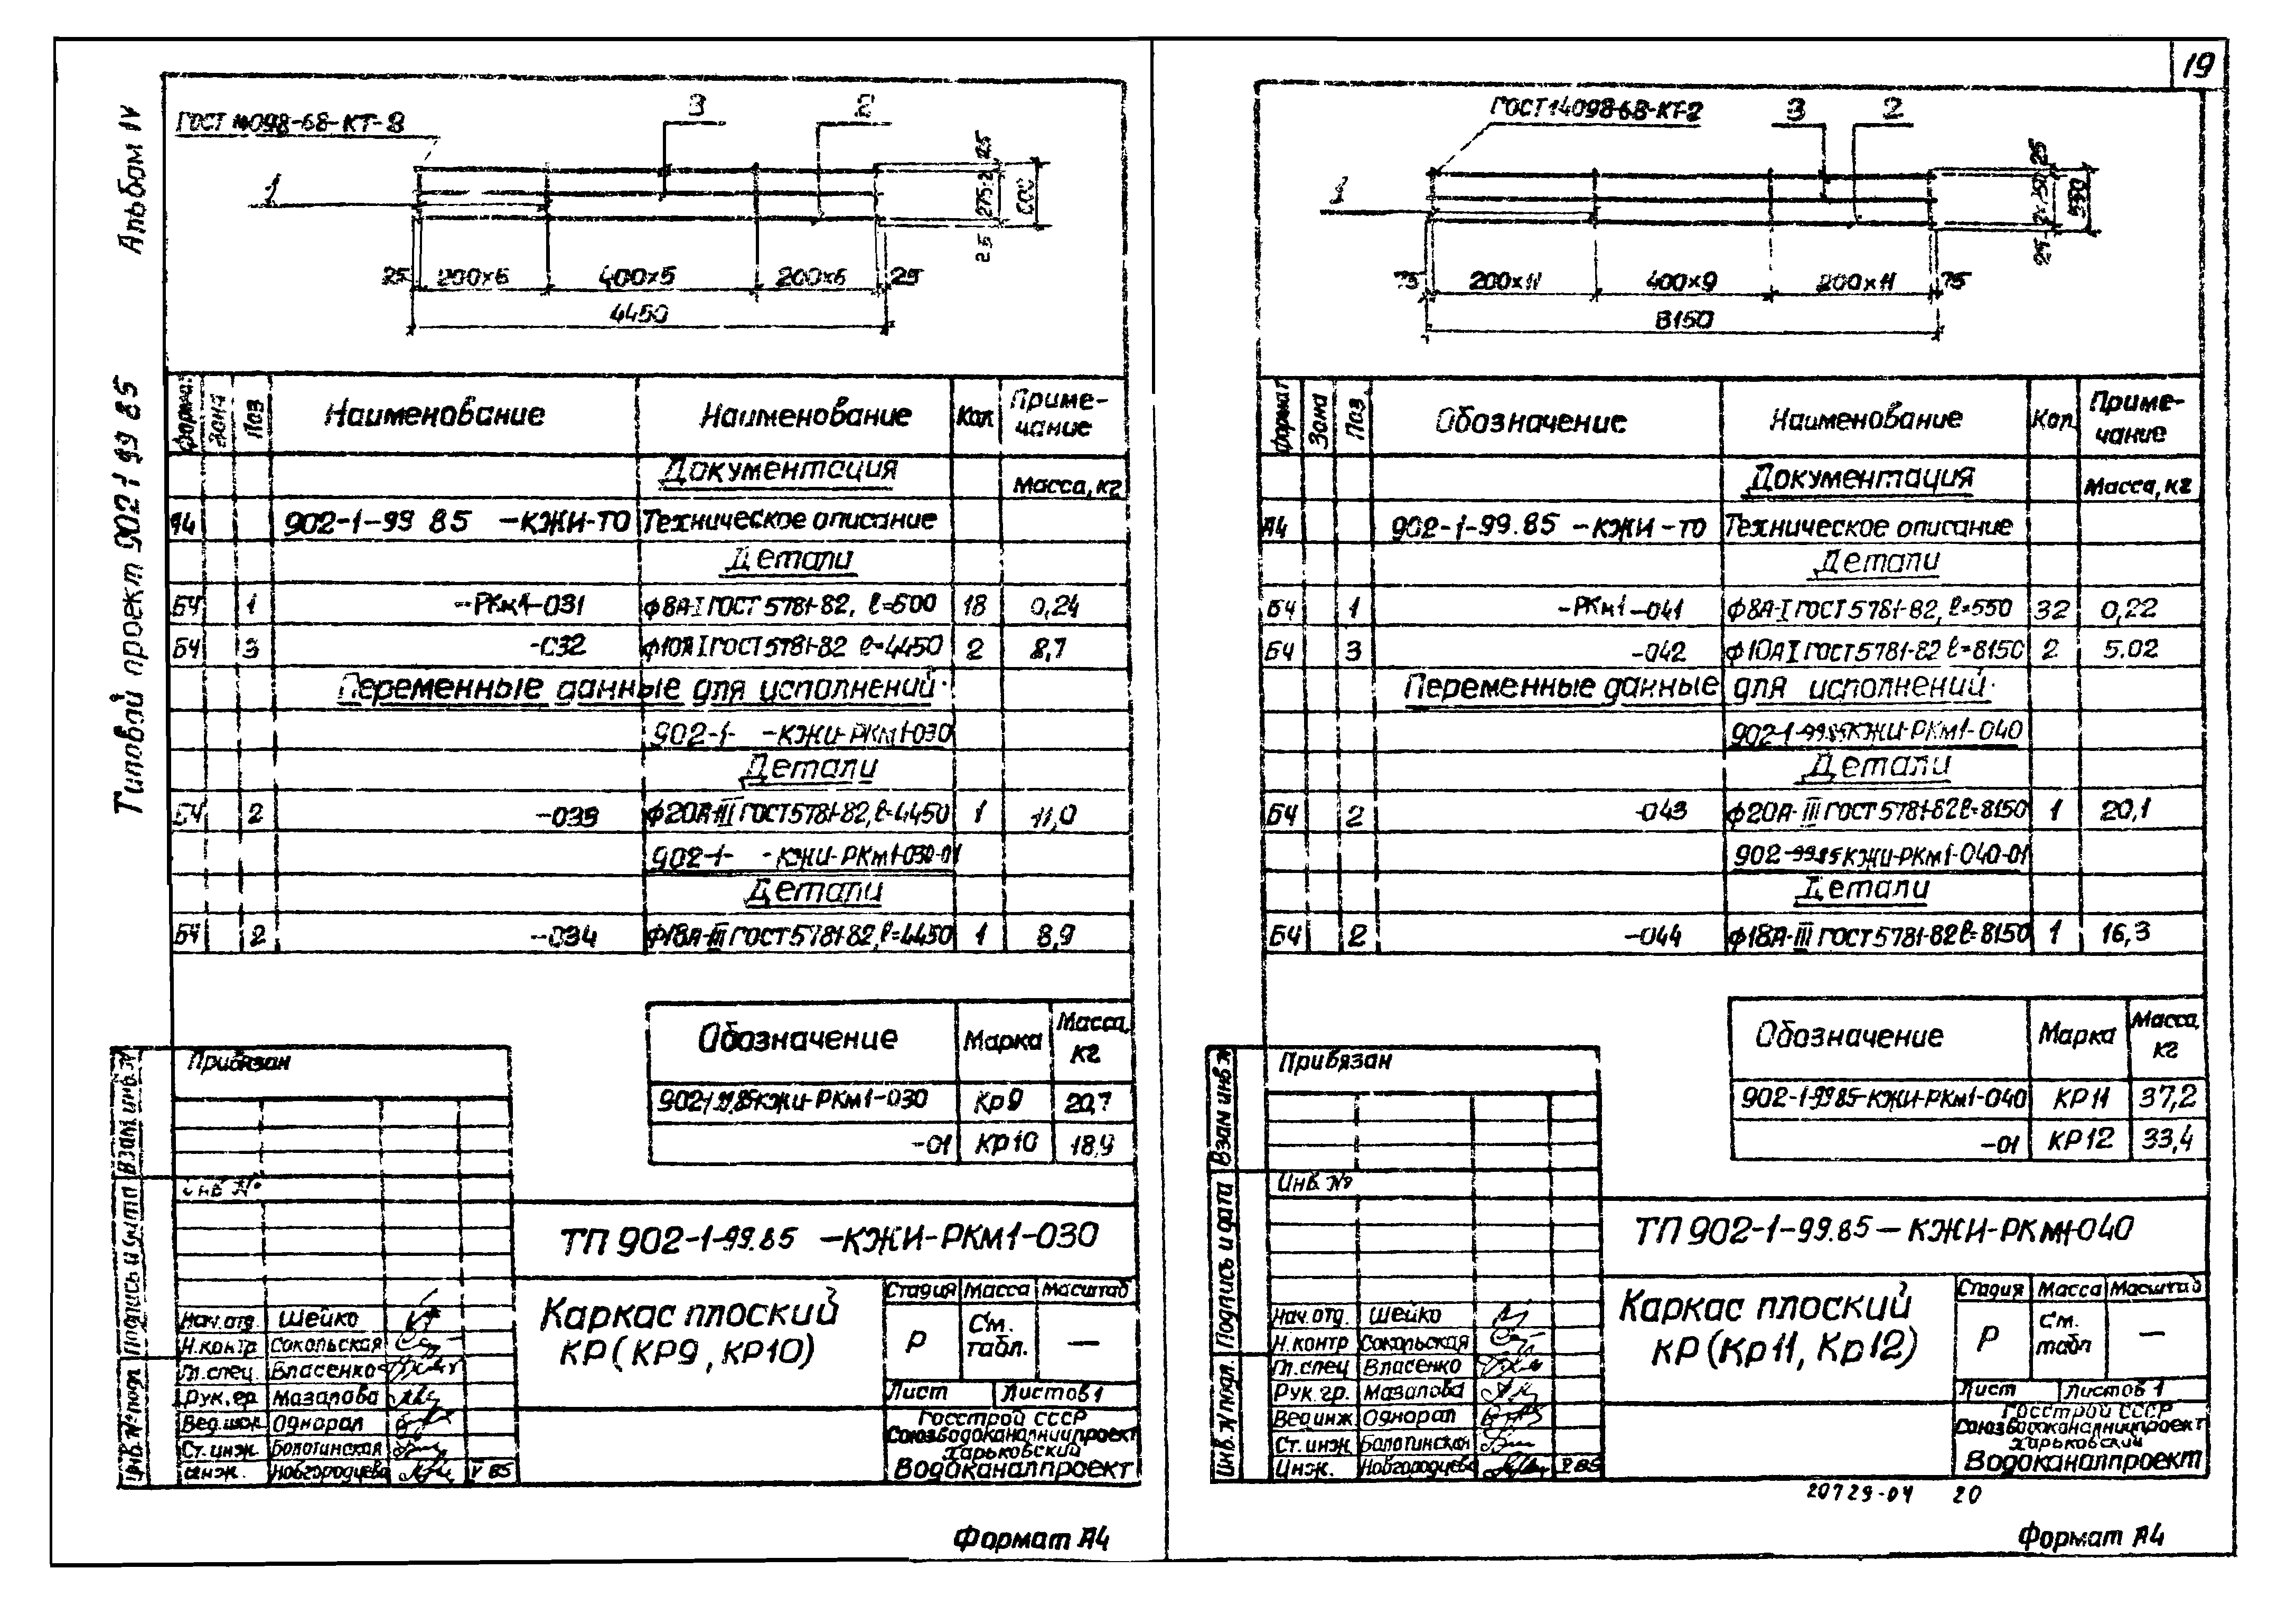 19
Альбом IV
Типовой проект 902 1 99 85
ГОСТ 14098-68-КТ-2
3
2
1
25
275×2
25
600
25
200×6
400×5
200×6
25
4450
Формат
Зона
Поз
Наименование
Наименование
Кол
Приме-
чание
Документация
Масса, кг
А4
902-1-99 85 -КЖИ-ТО
Техническое описание
Детали
БЧ 1 -РКм1-031 ф8А-I ГОСТ 5781-82, ℓ=600 18 0,24
БЧ 3 -032 ф10А I ГОСТ 5781-82 ℓ=4450 2 8,7
Переменные данные для исполнений
902-1- -КЖИ-РКм1-030
Детали
БЧ 2 -033 ф20А-III ГОСТ 5781-82, ℓ=4450 1 11,0
902-1- -КЖИ-РКм1-030-01
Детали
БЧ 2 -034 ф18А-III ГОСТ 5781-82, ℓ=4450 1 8,9
Обозначение
Марка
Масса,
кг
902-1-99.85КЖИ-РКм1-030 Кр9 20,7
-01 Кр10 18,9
Привязан
Инв №
Взам инв. №
Подпись и дата
Инв. № подл
ТП 902-1-99.85 -КЖИ-РКм1-030
Каркас плоский
КР (КР9, КР10)
Стадия Масса Масштаб
Р
См.
табл.
—
Лист
Листов 1
Нач. отд. Шейко
Н. контр Сокольская
Гл. спец. Власенко
Рук. гр. Мазалова
Вед. инж Однорал
Ст. инж. Болотинская
Инж. Новгородцева V 85
Госстрой СССР
Союзводоканалниипроект
Харьковский
Водоканалпроект
Формат А4
ГОСТ 14098-68-КТ-2
3
2
1
25
2×250
25
550
75
200×11
400×9
200×11
75
8150
Формат
Зона
Поз
Обозначение
Наименование
Кол
Приме-
чание
Документация
Масса, кг
А4
902-1-99.85 -КЖИ-ТО
Техническое описание
Детали
БЧ 1 -РКм1-041 ф8А-I ГОСТ 5781-82, ℓ=550 32 0,22
БЧ 3 -042 ф10А I ГОСТ 5781-82 ℓ=8150 2 5.02
Переменные данные для исполнений
902-1-99.85КЖИ-РКм1-040
Детали
БЧ 2 -043 ф20А-III ГОСТ 5781-82 ℓ=8150 1 20,1
902-99.85КЖИ-РКм1-040-01
Детали
БЧ 2 -044 ф18А-III ГОСТ 5781-82 ℓ=8150 1 16,3
Обозначение
Марка
Масса,
кг
902-1-99 85-КЖИ-РКм1-040 КР11 37,2
-01 КР12 33,4
Привязан
Инв. №
Взам инв №
Подпись и дата
Инв. № подл.
ТП 902-1-99.85-КЖИ-РКм1-040
Каркас плоский
КР (Кр11, Кр12)
Стадия Масса Масштаб
Р
См.
табл
—
Лист
Листов 1
Нач. отд. Шейко
Н. контр Сокольская
Гл. спец Власенко
Рук. гр. Мазалова
Вед инж Однорал
Ст. инж Болотинская
Инж. Новгородцева V 85
Госстрой СССР
Союзводоканалниипроект
Харьковский
Водоканалпроект
20729-04 20
Формат А4